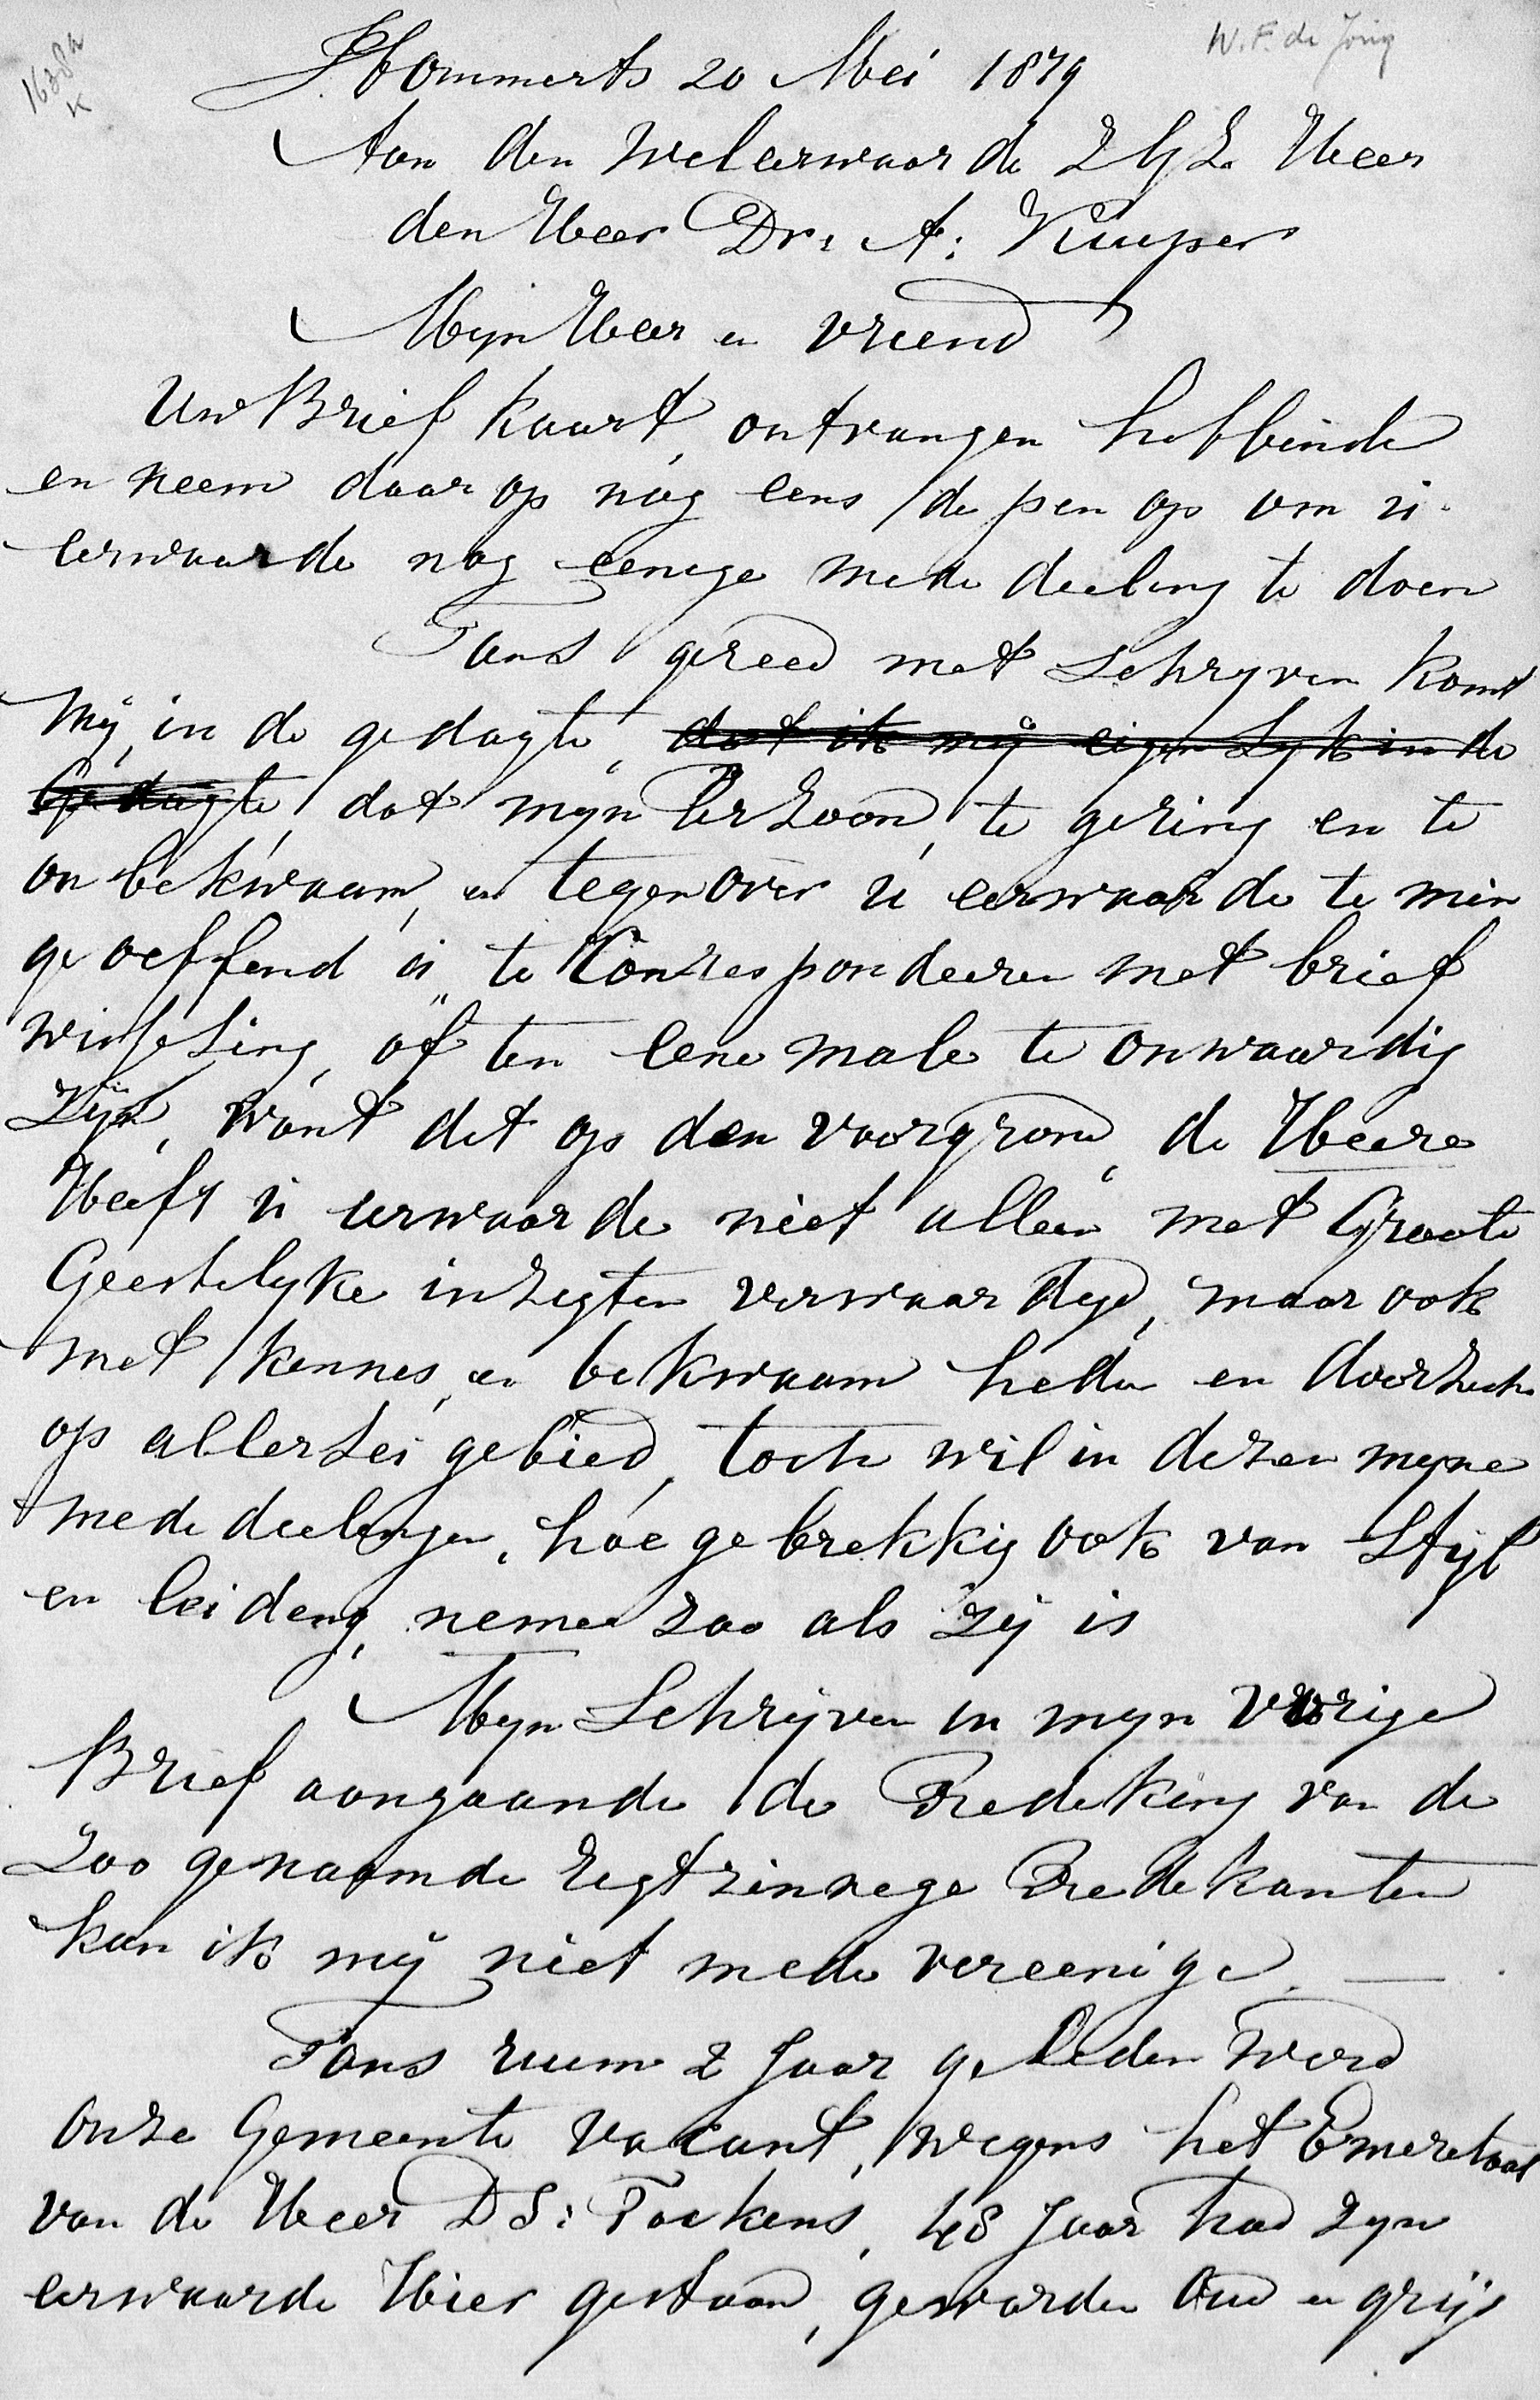 1628a
K
W. F. de Jong
Hommerts 20 Mei 1879
Aan den weleerwaarde Z G Z. Heer
den Heer Dr. A. Kuyper
Mijn Heer en vriend
Uw Brief kaart, ontvangen hebbende
en neem daar op nog eens de pen op om u.
eerwaarde nog eenege mede deeling te doen
Tans gereed met Schryven komt
Mij, in de gedagte, dat ik mij eigen Lyk in de
Gedagte, dat myn Perzoon, te gering en te
on bekwaam, en tegenover U eerwaarde te min
geoeffend is, te Correspondeeren met brief
wisseling, of ten eene male te onwaardig
Zijn, want dit op den voorgrond, de Heere
Heeft U eerwaarde niet alleen met Groote
Geestelyke inzegten verwaardigd, maar ook
met kennes, en bekwaam heden en doorzicht
op allerLei gebied, toch wil in dezen myne
mede deelingen, hoe gebrekkig ook van Stijl
en leideng, nemen zoo als zij is
Mijn Schrijven in myn vorige
Brief aangaande de Predeking van de
Zoo genaamde regtzinnege Predekanten
kan ik mij niet mede vereenige. —
Tans ruim 2 Jaar geleden werd
onze Gemeente vacant, wegens het Emeretaat
van de Heer DS: Fockens, 48 Jaar had zyn
eerwaarde Hier gestaan, geworden Oud en grijs